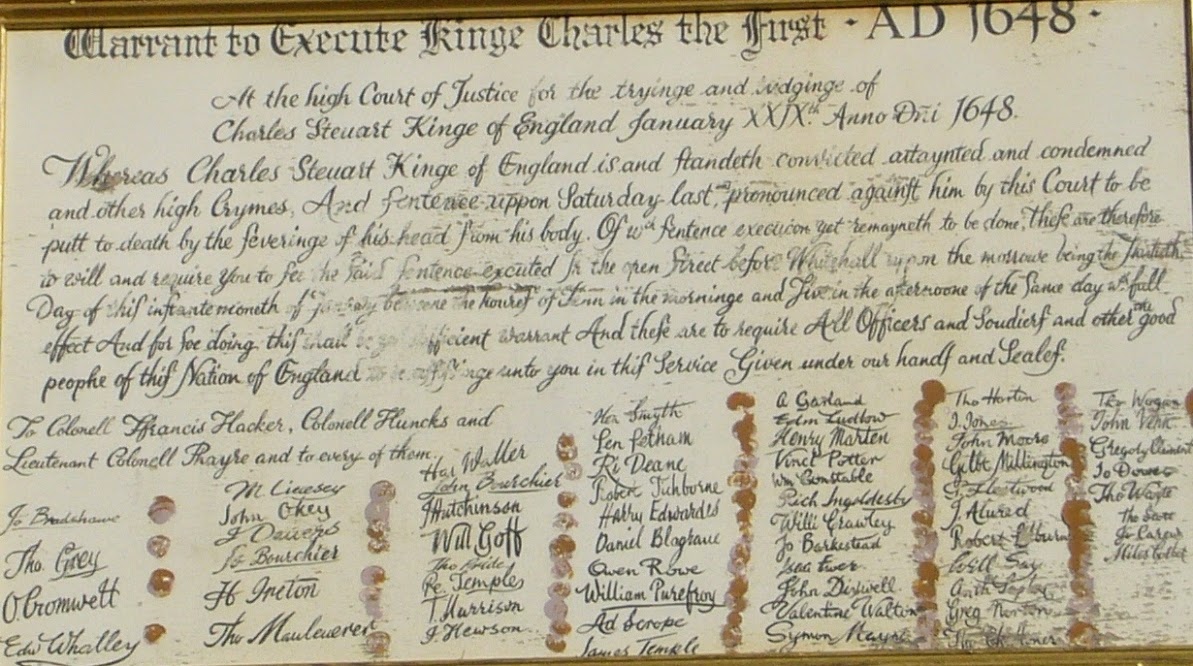 Warrant to Execute Kinge Charles the First · AD 1648 ·
At the high Court of Justice for the tryinge and iudginge of
Charles Steuart Kinge of England January XXIXth. Anno Dñi 1648.
Whereas Charles Steuart Kinge of England is and standeth convicted attaynted and condemned
and other high Crymes, And sentence uppon Saturday last was pronounced against him by this Court to be
putt to death by the severinge of his head from his body. Of wch sentence execucon yet remayneth to be done, These are therefore
to will and require you to see the said sentence excuted In the open Street before Whitehall uppon the morrowe being the Thirtieth
Day of this instante moneth of January betweene the houres of Tenn in the morninge and Five in the afternoone of the Same day wth full
effect And for soe doing this shall be yor sufficient warrant And these are to require All Officers and Soudiers and other the good
peophe of this Nation of England to be assistinge unto you in this Service Given under our hands and Seales.
To Colonell Ffrancis Hacker, Colonell Huncks and
Lieutenant Colonell Phayre and to every of them.
Jo Bradshawe
Tho. Grey
O. Cromwell
Edw Whalley
M. Liuesey
John Okey
J Dauers
Jo Bourchier
H Ireton
Tho Mauleuerer
Har Waller
John Bourchier
Hutchinson
Will Goff
Tho Pride
Pe Temples
T. Harrison
J Hewson
Hen Smyth
Pen Pelham
Ri Deane
Robert Tichborne
Harry Edwardes
Daniel Blagraue
Owen Rowe
William Purefroy
Ad Scrope
James Temple
A Garland
Edm Ludlow
Henry Marten
Vinct Potter
Wm Constable
Rich Ingoldesby
Willi Crawley
Jo Barkestead
Isaa Ewer
John Dixwell
Valentine Walton
Symon Mayne
Tho Horton
J. Jones
John Moore
Gilbt Millington
G Fleetwood
J Alured
Robert Lilburn
Will Say
Greg Norton
Tho Wogan
John Venn
Gregory Clement
Jo Downes
Tho Wayte
Tho Scot
Jo Carew
Miles Corbet